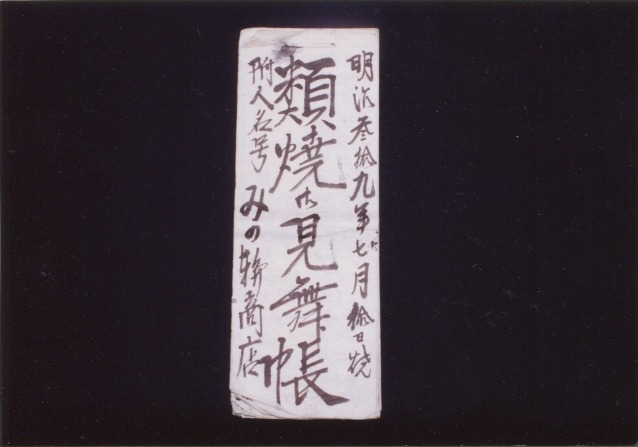 明治参拾九年七月拾日焼
類焼御見舞帳
附人名号 みの輪商店